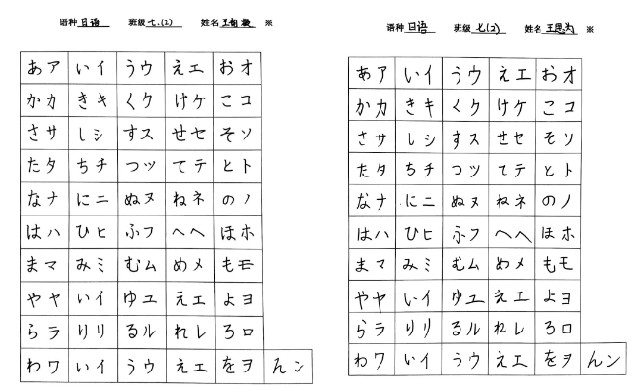 语种 日语 班级 七.(2) 姓名 王 ※
あア いイ うウ えエ おオ
かカ きキ くク けケ こコ
さサ しシ すス せセ そソ
たタ ちチ つツ てテ とト
なナ にニ ぬヌ ねネ のノ
はハ ひヒ ふフ へヘ ほホ
まマ みミ むム めメ もモ
やヤ いイ ゆユ えエ よヨ
らラ りリ るル れレ ろロ
わワ いイ うウ えエ をヲ んン
语种 日语 班级 七(2) 姓名 王思为 ※
あア いイ うウ えエ おオ
かカ きキ くク けケ こコ
さサ しシ すス せセ そソ
たタ ちチ つツ てテ とト
なナ にニ ぬヌ ねネ のノ
はハ ひヒ ふフ へヘ ほホ
まマ みミ むム めメ もモ
やヤ いイ ゆユ えエ よヨ
らラ りリ るル れレ ろロ
わワ いイ うウ えエ をヲ んン